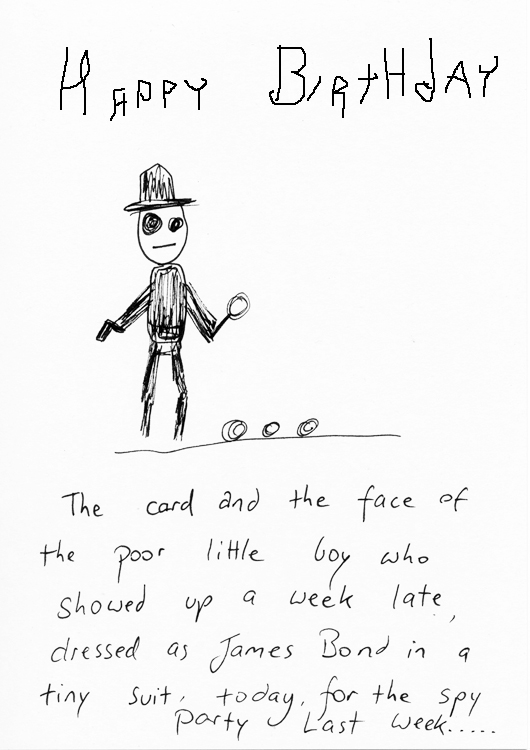 HAPPY BIRTHDAY
The card and the face of
the poor little boy who
showed up a week late,
dressed as James Bond in a
tiny suit, today, for the spy
party Last week.....